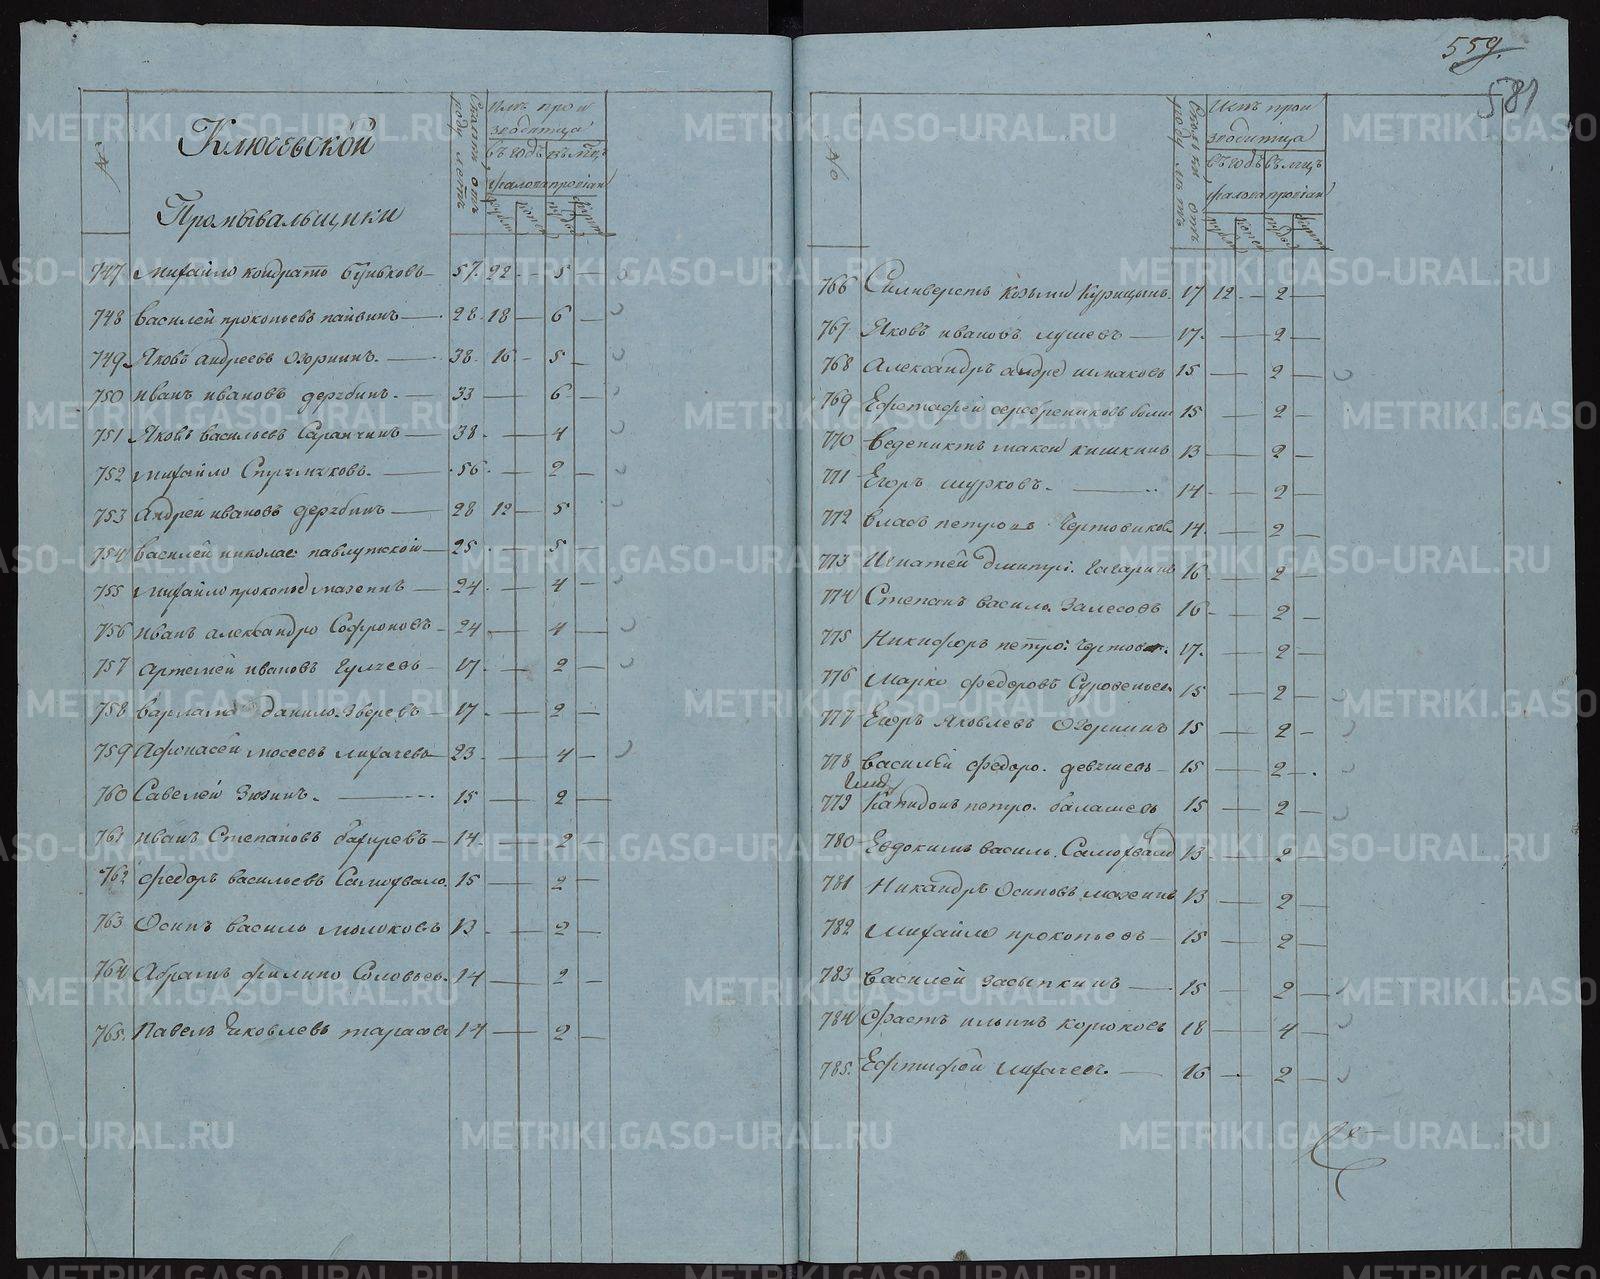 559.
581
№
Ключевской
Промывальщики
Сколки отъ роду летъ
Имъ произ
водитца
въ годъ въ мцъ
жалова провиан
рубли копей пуды фунт
747 михайло кондрать буньковъ 57. 22 — 5 —
748 василей прокопьевъ пайвинъ — 28. 18 — 6 —
749 Яковъ андреевъ Озорнинъ — 38. 16 — 5 —
750 иванъ ивановъ дерябинъ — 33 — — 6 —
751 Яковъ васильевъ Саранчинъ — 38. — — 4 —
752 михайло — 56 — — 2 —
753 андрей ивановъ дерябинъ — 28 12 — 5
754 василей николае: павлуцкой — 25 — — 5 —
755 михайло прокопье махнинъ — 24 — — 4 —
756 иванъ александро Софроновъ — 24 — — 4 —
757 артемей ивановъ — 17. — — 2 —
758 варламъ данило. Зверевъ — 17. — — 2 —
759 Афонасей мосеевъ лихачевъ 23 — — 4 —
760 Савелей Зюзинъ — 15 — — 2 —
761 иванъ Степановъ бахиревъ — 14. — — 2 —
762 федоръ васильевъ Самохвало. 15 — — 2 —
763 Осипъ василь молоковъ 13. — — 2 —
764 Абрамъ филипо Соловьев. 14 — — 2 —
765. Павелъ Яковлевъ тарасов 14 — — 2 —
№
Сколки отъ роду летъ
Имъ произ
водитца
въ годъ въ мцъ
жалова провиан
рубли копей пуды фунт
766 Силиверстъ козьмин Курицынъ. 17 12 — 2 —
767 Яковъ ивановъ лушевъ — 17. — — 2 —
768 Александръ андре шмаковъ 15 — — 2 —
769 серебрениковъ болш 15 — — 2 —
770 веденихтъ макси кишкинъ 13 — — 2 —
771 Егоръ шурковъ. — 14. — — 2 —
772 власъ петровъ Чертовиков 14. — — 2 —
773 Игнатей дмитрі. гагаринъ 16 — — 2 —
774 Степанъ василь. Залесовъ 16 — — 2 —
775 Никифоръ петро: Чертов 17. — — 2 —
776 Марко федоровъ 15 — — 2 —
777 Егоръ Яковлевъ Озорнинъ 15 — — 2 —
778 василей федоро. девяшевъ — 15 — — 2 —
779 Капидонъ петро. балашевъ 15 — — 2 —
780 Евдокимъ василь. Самохвало 13. — — 2 —
781 Никандръ Осиповъ махнинъ 13 — — 2 —
782 михайло прокопьевъ — 15 — — 2 —
783 василей засыпкинъ — 15 — — 2 —
784 Фастъ ильинъ корюковъ 18 — — 4 —
785. лихачевъ. — 16 — — 2 —
METRIKI.GASO-URAL.RU